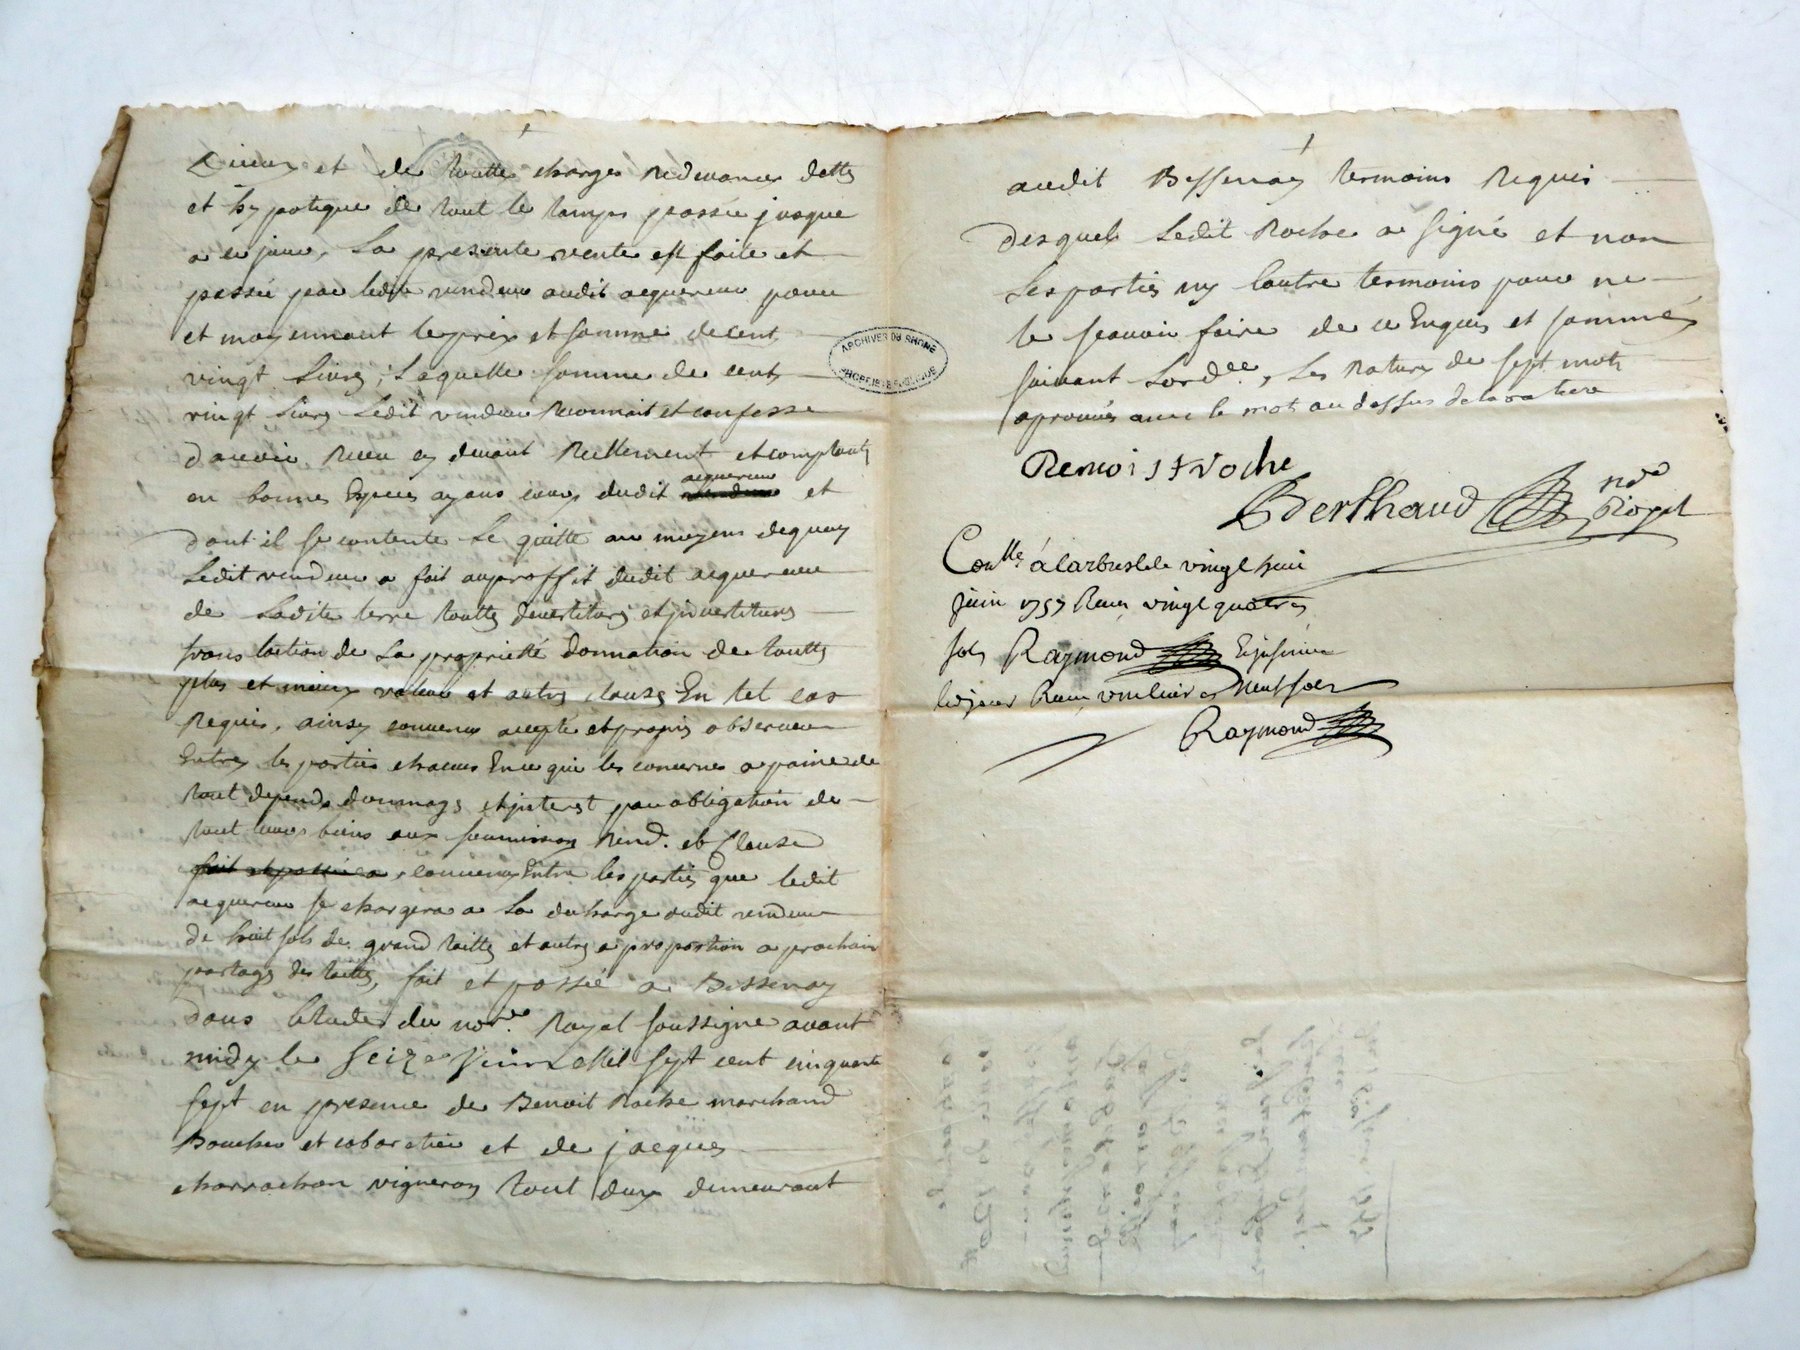 et de toutte charges redevances dettes
et hypotique de tout le temps passée jusque
a ce jour. La presente vente est faite et
passée par ledit vendeur audit acquereur pour
et moyennant le prix et somme de cent
vingt livres, laquelle somme de cent
vingt livres ledit vendeur reconnait et confesse
d'avoir receu cy devant reellement et comptant
en bonnes especes ayans cours dudit acquereur et
dont il se contente le quitte au moyens de quoy
ledit vendeur a fait auproffit dudit acquereur
de ladite terre touttes devestitures et jnvestitures
translation de la proprieté donnation de touttes
plus et mieux value et autres clauses En tel cas
Requis. ainsy convenus accepté et promis observer
Entres les parties chacuns En ce qui les concernes a paine de
tout depends dommages et jnterest par obligation de
tout leurs biens aux soumissions Rend. et Clause
fait et passé a convenus Entre les parties que ledit
acquereur se chargera a la decharge dudit vendeur
de huit sols de grand taille et autres a proportion a prochain
partage des tailles, fait et passé a Bessenay
dans l'etude du nore. Royal soussigné avant
midy le seize Juin Mil sept cent cinquante
sept en presence de Benoit Roche marchand
Boucher et cabaretier et de jacques
charrachon vigneron tout deux demeurant
audit Bessenay termoins Requis
desquels Ledit Roche a signé et non
les parties ny lautre termoins pour ne
le scavoir faire de ce Enquis et sommés
suivant Lord.ce, Les Ratures de sept mots
aprouvées avec le mot au dessus de la rature
Benoist Roche
Berthaud nore Royal
ARCHIVES DU RHONE
Conlle. á larbresle le vingt huit
juin 1757 Receu vingt quatre
sols Raymond Et jnsinué
ledjour Receu neuf sols
Raymond